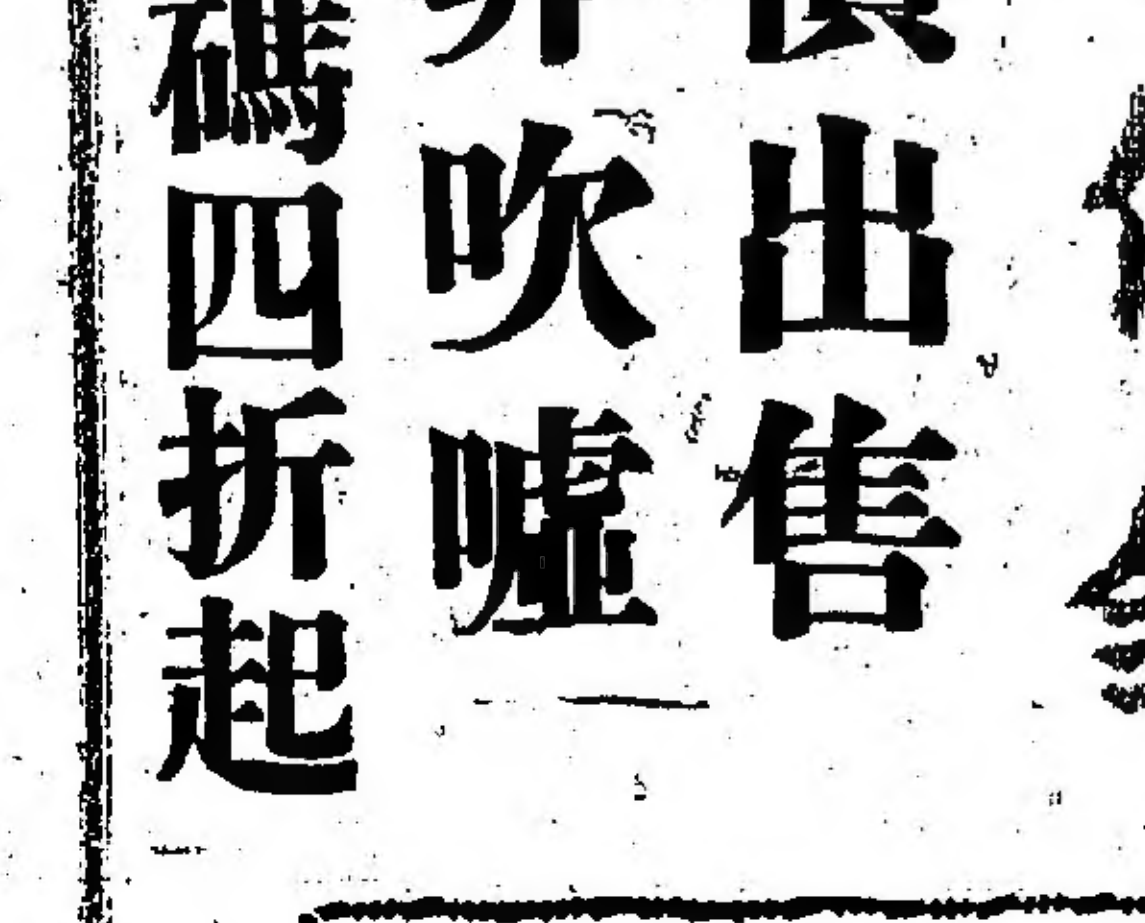 出售
吹噓
碼四折起